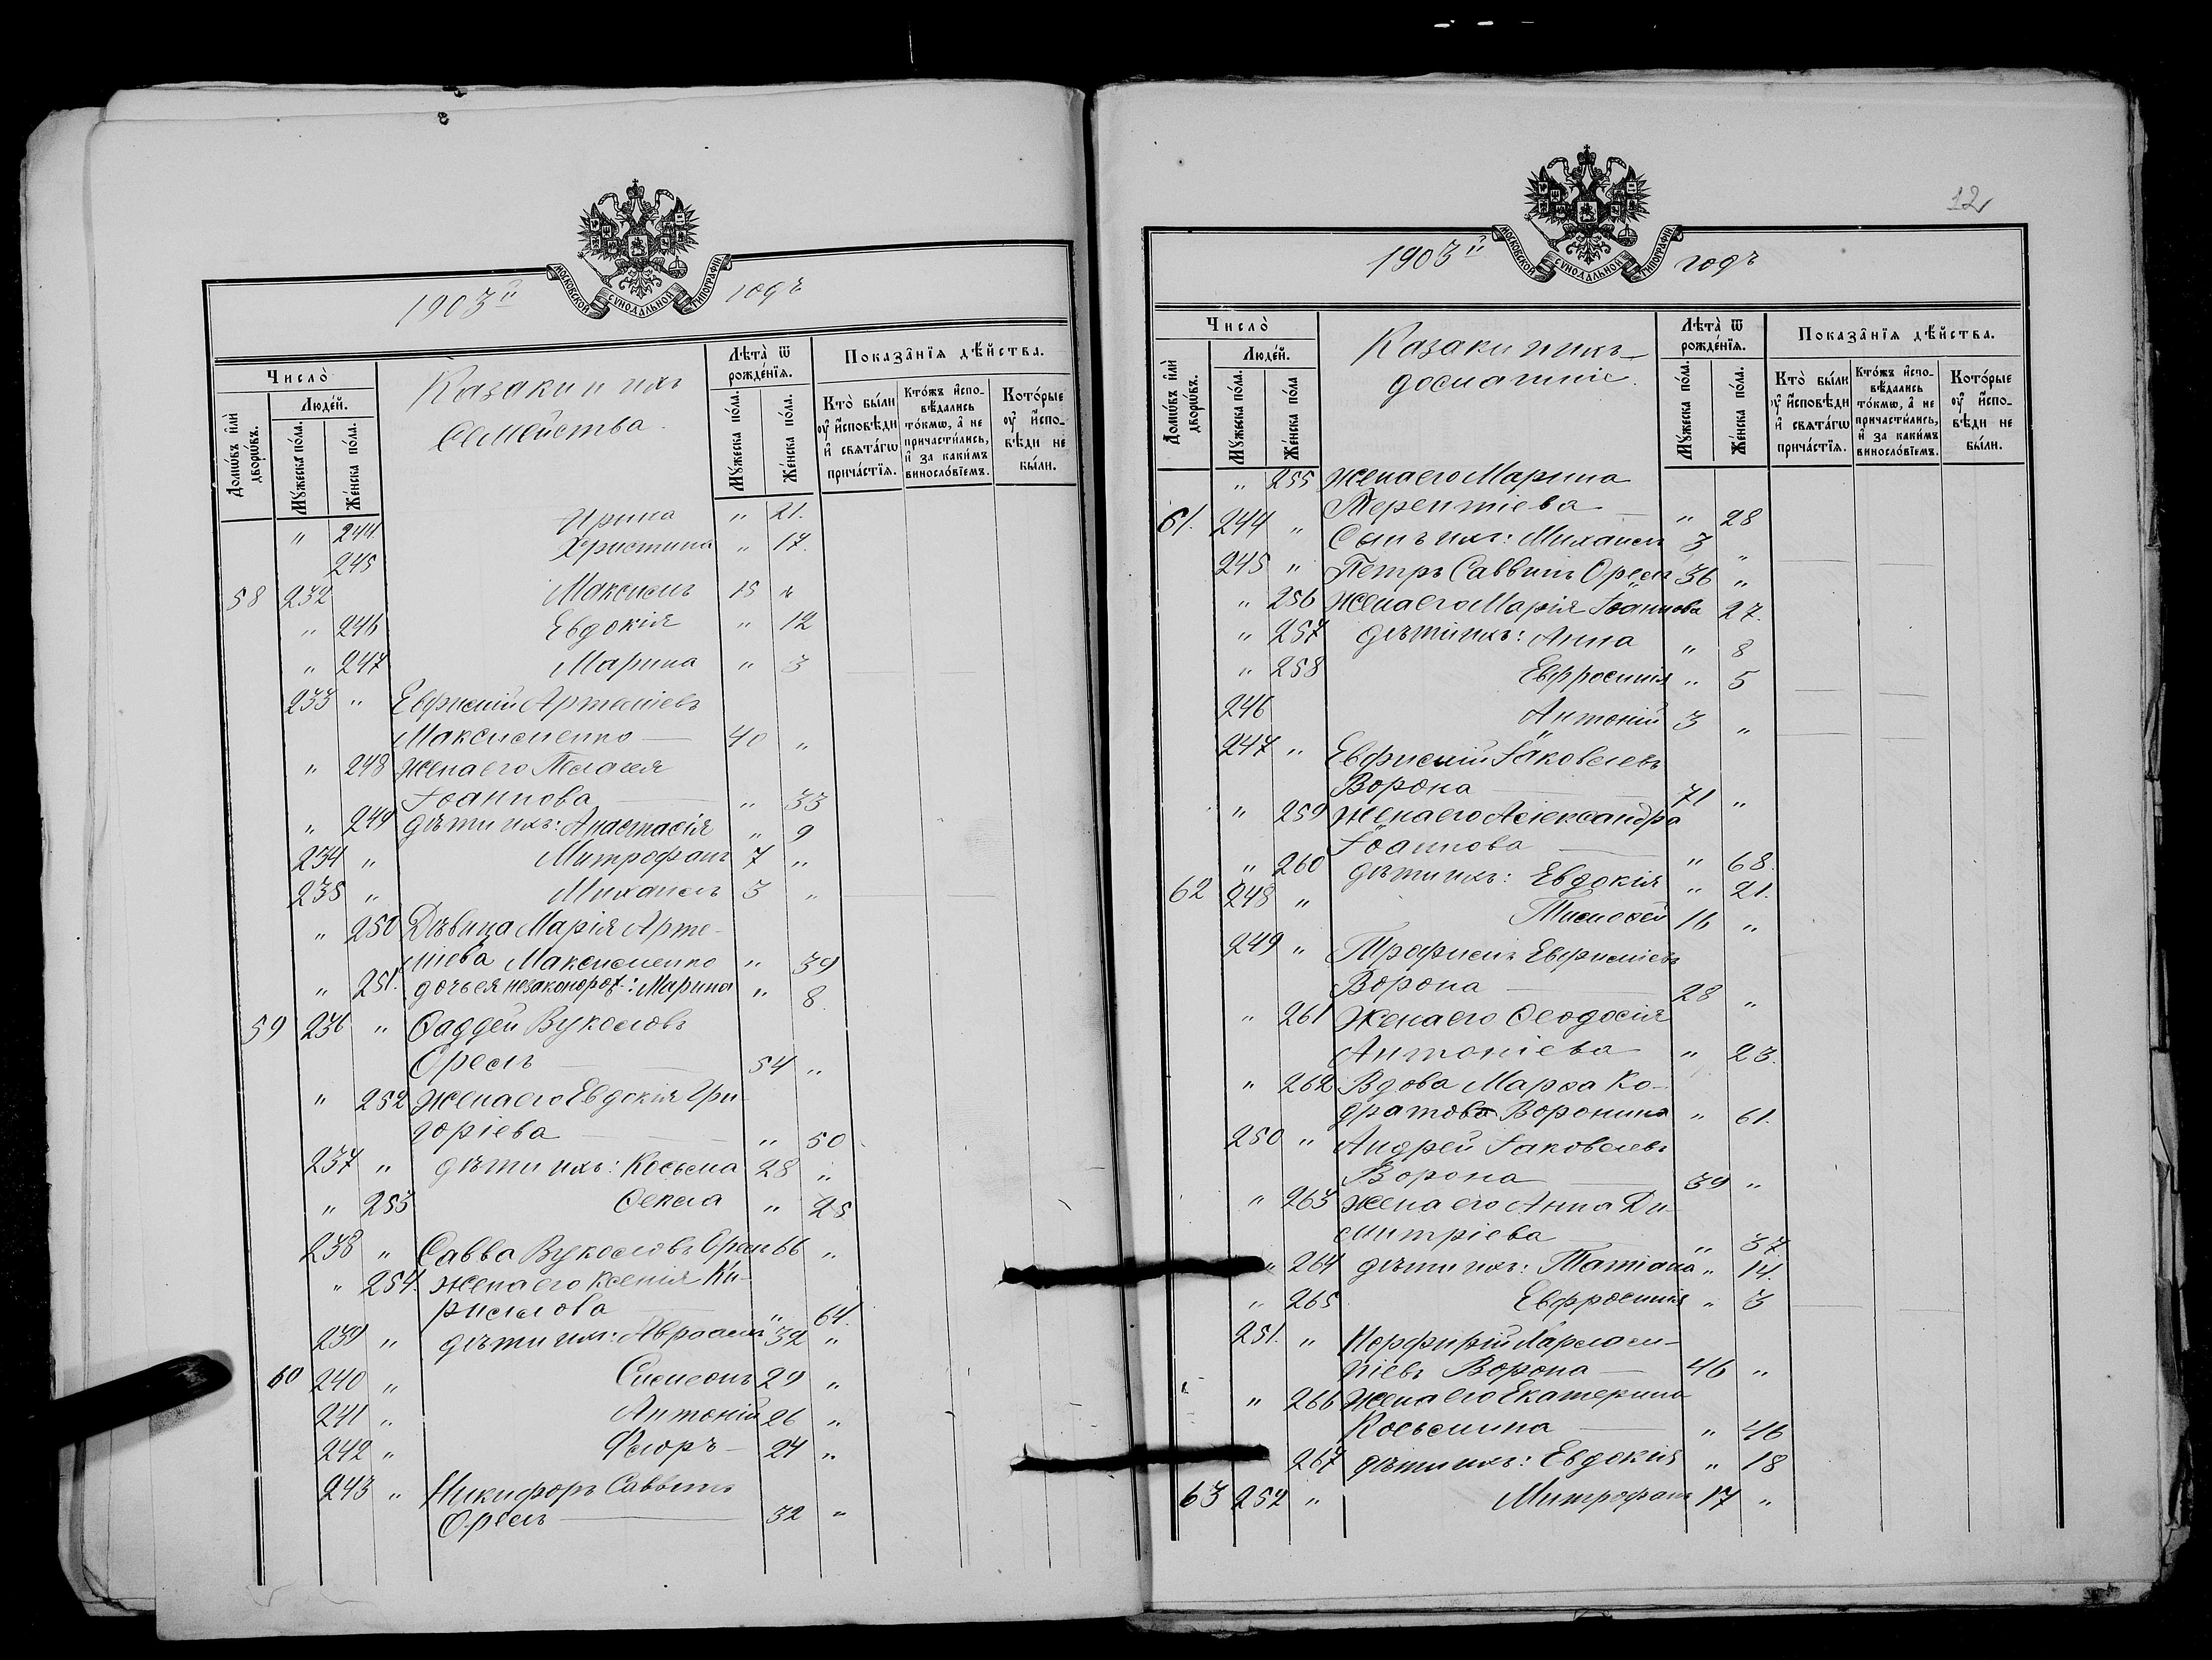 МОСКОВСКОЙ СУНОДАЛЬНОЙ ТИПОГРАФІИ
1903й годъ
Число̀
Домѡ́въ и҆лѝ дворѡ́въ.
Люде́й.
Мꙋ́жеска по́ла.
Же́нска по́ла.
Казаки и ихъ
Семейства.
Лѣта̀ ѿ рожде́нїѧ.
Мꙋ́жеска по́ла.
Же́нска по́ла.
Показа̑нїѧ дѣ́йства.
Кто̀ бы́ли оу҆ и҆сповѣ́ди и҆ свѧта́гѡ прича́стїѧ.
Кто́жъ и҆спо- вѣ́дались то́кмѡ, а҆ не причасти́лись, и҆ за каки́мъ винослові́емъ.
Кото́рые оу҆ и҆спо- вѣ́ди не бы́ли.
" 244 Ирина " 21.
245 Христина " 17.
58 232 Максимъ 15 "
" 246 Евдокія " 12
" 247 Марина " 3
233 " Евфимій Артеміевъ
Максименко — 40 "
" 248 Жена его Пелагея
Іоаннова — " 33
" 249 Дѣти ихъ: Анастасія " 9
234 " Митрофанъ 7 "
235 " Михаилъ 3 "
" 250 Дѣвица Марія Арте-
міева Максименко " 39
" 251. дочь ея незаконорож.: Марина " 8
59 236 " Ѳаддей Вуколовъ
Орелъ — 54 "
" 252 Жена его Евдокія Гри-
горіева — " 50
237 " дѣти ихъ: Косьма 28 "
" 253 Ѳекла " 25
238 " Савва Вуколовъ Орелъ 66 "
" 254. Жена его Ксенія Ки-
риллова " 64.
239 " дѣти ихъ: Авраамъ 32 "
60 240 " Симеонъ 29 "
241 " Антоній 26 "
242 " Флоръ — 24 "
243 " Никифоръ Саввинъ
Орелъ — 32 "
12
МОСКОВСКОЙ СУНОДАЛЬНОЙ ТИПОГРАФІИ
1903й годъ
Число̀
Домѡ́въ и҆лѝ дворѡ́въ.
Люде́й.
Мꙋ́жеска по́ла.
Же́нска по́ла
Казаки и ихъ
домашніе.
Лѣта̀ ѿ рожде́нїѧ.
Мꙋ́жеска по́ла.
Же́нска по́ла.
Показа̑нїѧ дѣ́йства.
Кто̀ бы́ли оу҆ и҆сповѣ́ди и҆ свѧта́гѡ прича́стїѧ.
Кто́жъ и҆спо- вѣ́дались то́кмѡ, а҆ не причасти́лись, и҆ за каки́мъ винослові́емъ.
Кото́рые оу҆ и҆спо- вѣ́ди не бы́ли.
" 255 Жена его Марина
Терентіева — " 28
61. 244 " Сынъ ихъ: Михаилъ 3 "
245 " Петръ Саввинъ Орелъ 36 "
" 256 Жена его Марія Іоаннова 27.
" 257 дѣти ихъ: Анна " 8
" 258 Евфросинія " 5
246 Антоній 3 "
247 " Евфимій Іаковлевъ
Ворона — 71 "
" 259 Жена его Александра
Іоаннова — " 68.
" 260 дѣти ихъ: Евдокія " 21.
62 248 " Тимоѳей 16 "
249 " Трофимъ Евфиміевъ
Ворона — 28 "
" 261 Жена его Ѳеодосія
Антоніева " 23.
" 262 Вдова Марѳа Ко-
дратова Воронина " 61.
250 " Андрей Іаковлевъ
Ворона — 39 "
" 263 Жена его Анна Ди-
митріева — " 37.
" 264 дѣти ихъ: Татіана " 14.
" 265 Евфросинія " 3
251. " Порфирій Харлам-
піевъ Ворона — 46 "
" 266 Жена его Екатерина
Косьмина — " 46
267 дѣти ихъ: Евдокія " 18
63 252 " Митрофанъ 17 "